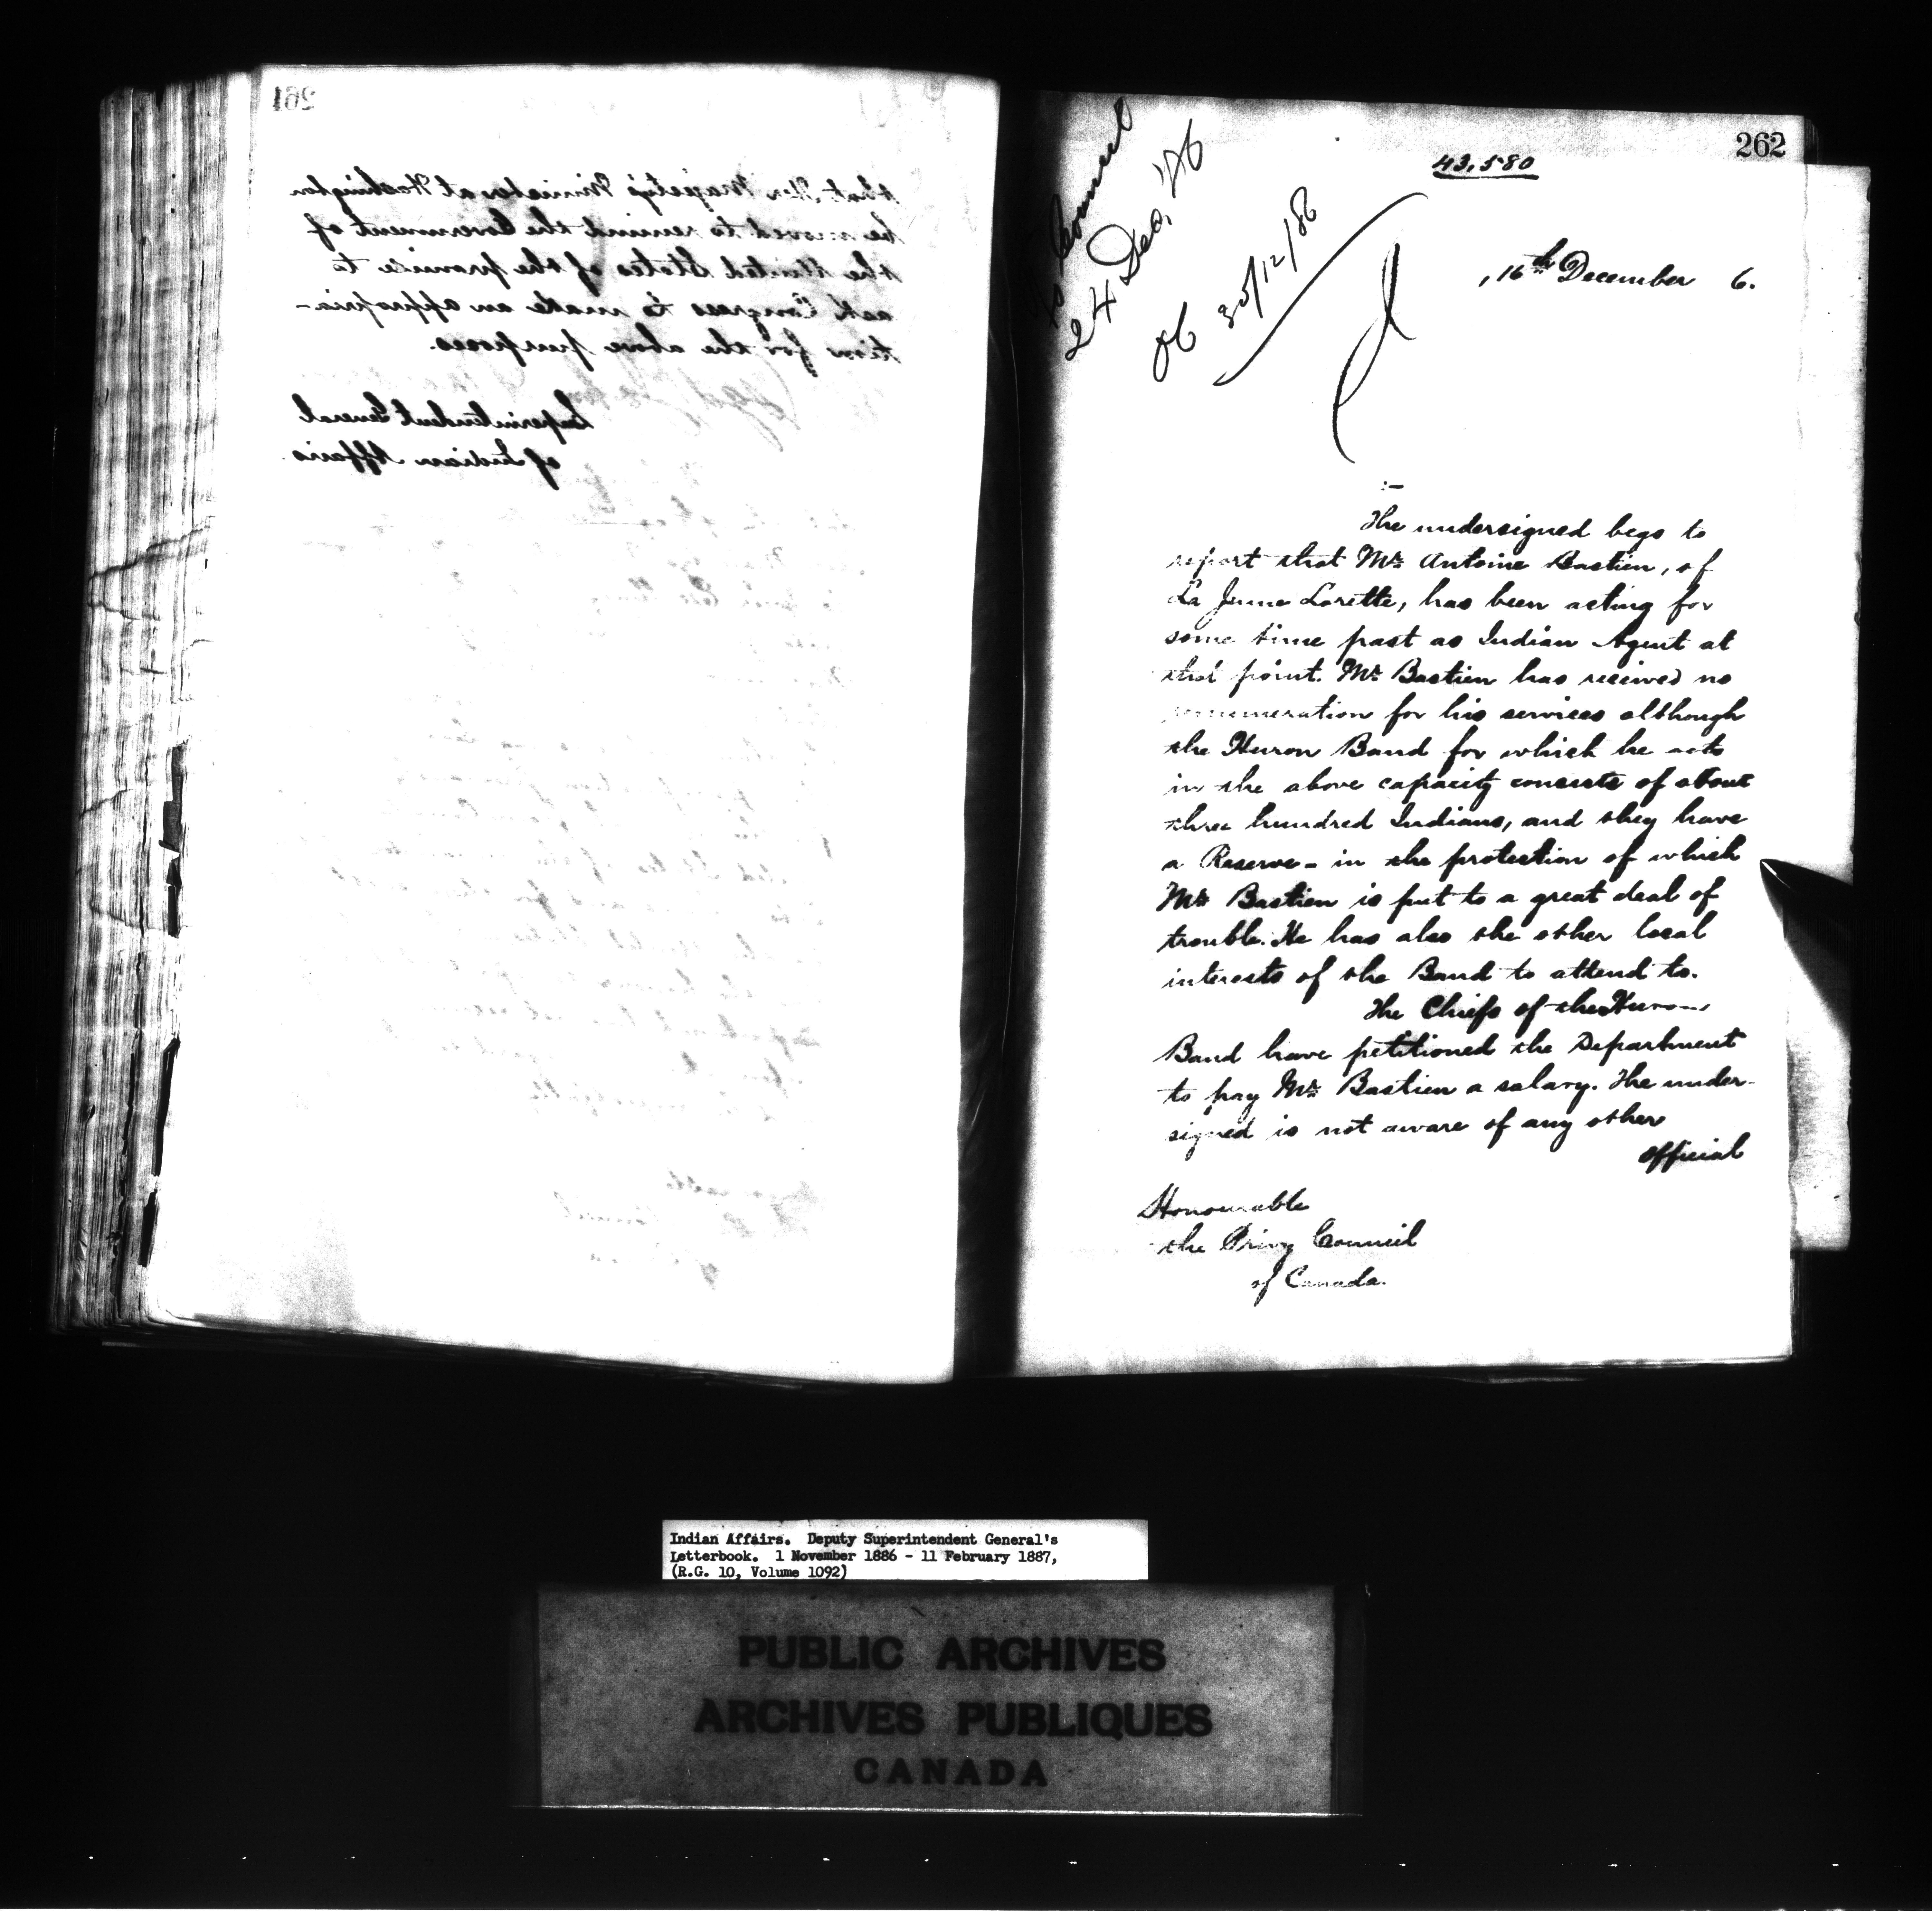 261
that Her Majesty's Minister at Washington
be moved to remind the Government of
the United States of the promise to
ask Congress to make an appropria-
tion for the above purposes.
Superintendent General
of Indian Affairs.
262
43,580
to Council
24 Dec, '86
OC 30/12/86
, 16th December 6.
:-
The undersigned begs to
report that Mr. Antoine Bastien, of
La Jeune Lorette, has been acting for
some time past as Indian Agent at
that point. Mr. Bastien has received no
remuneration for his services although
the Huron Band for which he acts
in the above capacity consists of about
three hundred Indians, and they have
a Reserve - in the protection of which
Mr. Bastien is put to a great deal of
trouble. He has also the other local
interests of the Band to attend to.
The Chiefs of the Huron
Band have petitioned the Department
to pay Mr. Bastien a salary. The under-
signed is not aware of any other
official
Honourable
the Privy Council
of Canada.
Indian Affairs. Deputy Superintendent General's
Letterbook. 1 November 1886 - 11 February 1887,
(R.G. 10, Volume 1092)
PUBLIC ARCHIVES
ARCHIVES PUBLIQUES
CANADA